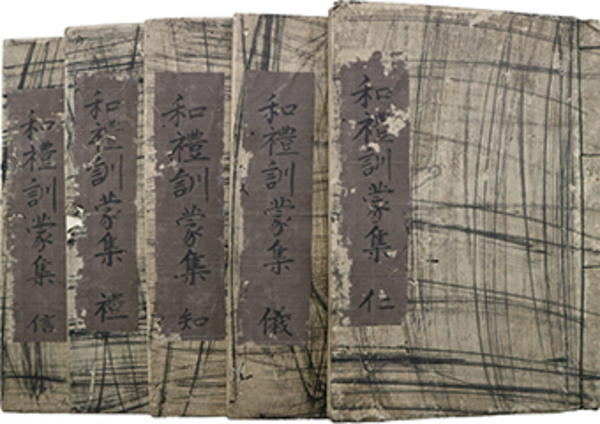 和禮訓蒙集 仁
和禮訓蒙集 儀
和禮訓蒙集 知
和禮訓蒙集 禮
和禮訓蒙集 信